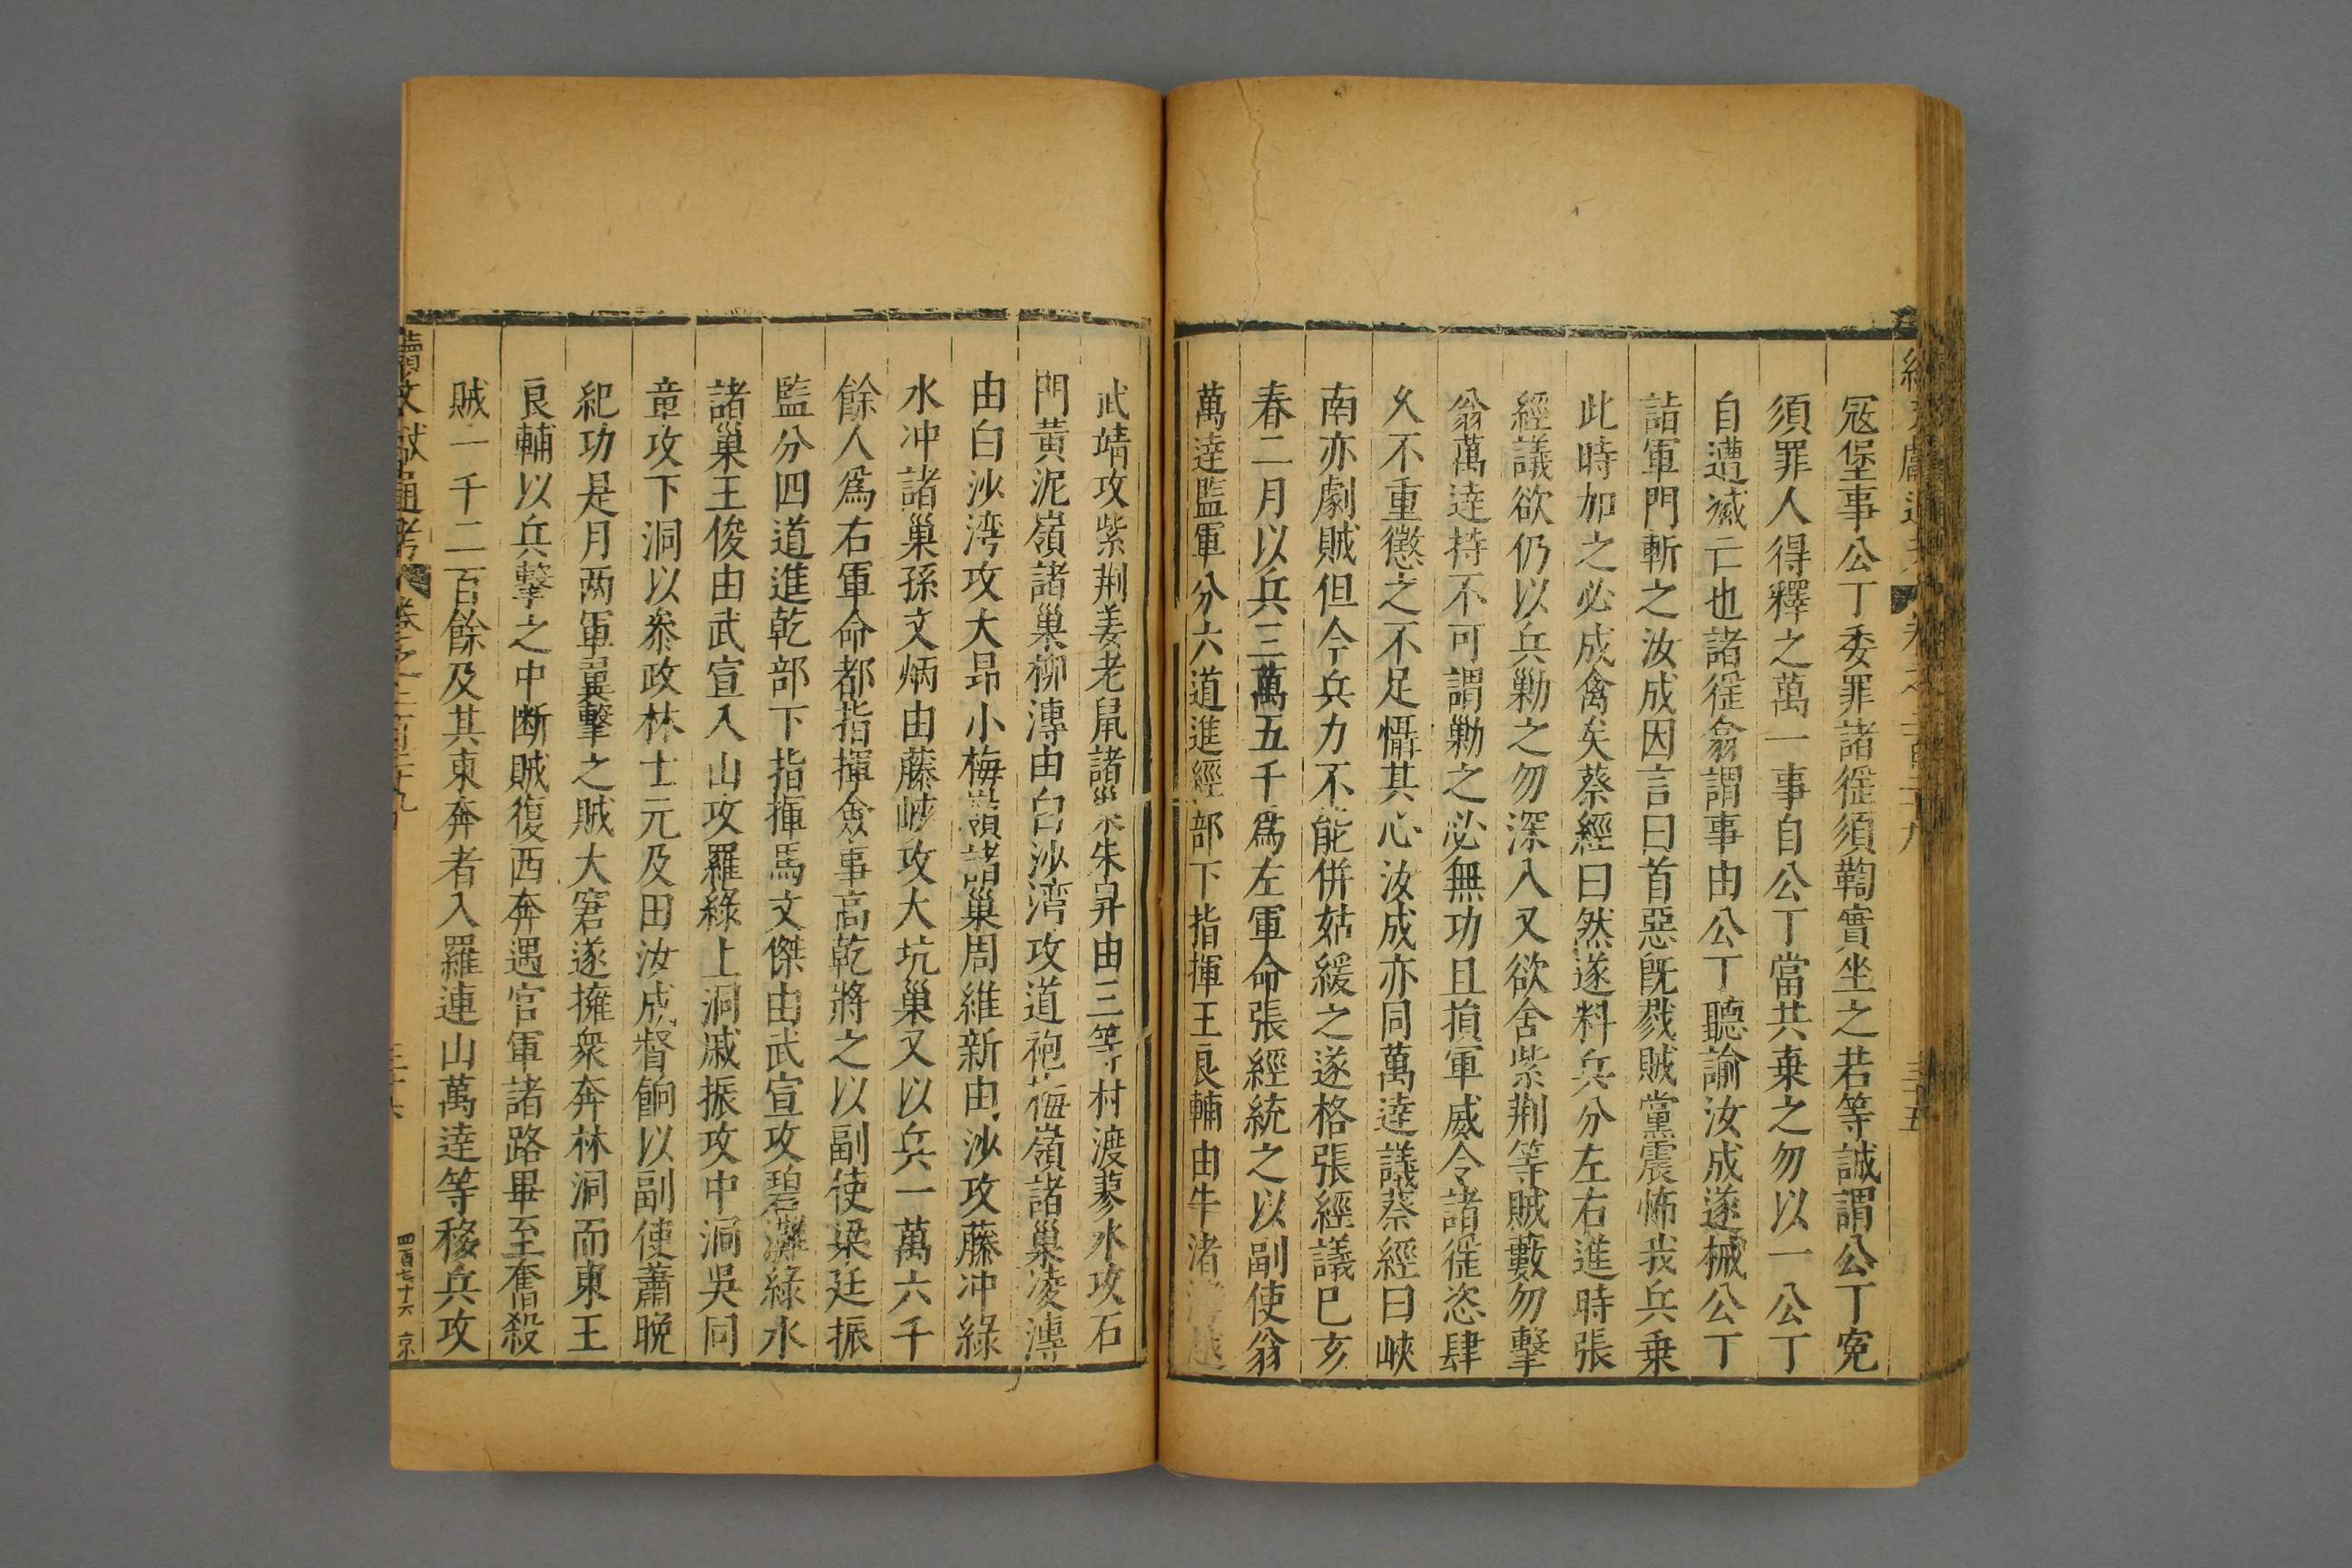 寇堡事公丁委罪諸徭須鞫實坐之若等誠謂公丁寃
須罪人得釋之萬一事自公丁當共棄之勿以一公丁
自遭滅亡也諸徭翕謂事由公丁聽諭汝成遂械公丁
詣軍門斬之汝成因言曰首惡旣戮賊黨震怖我兵乗
此時加之必成禽矣蔡經曰然遂料兵分左右進時張
經議欲仍以兵勦之勿深入又欲舍紫荆等賊藪勿擊
翁萬逹持不可謂勦之必無功且損軍威令諸徭恣肆
乆不重懲之不足懾其心汝成亦同萬逹議蔡經曰峽
南亦劇賊但今兵力不能併姑緩之遂格張經議巳亥
春二月以兵三萬五千爲左軍命張經統之以副使翁
萬逹監軍分六道進經部下指揮王良輔由牛渚
武靖攻紫荆姜老鼠諸巢朱昇由三等村渡蓼水攻石
門黄泥嶺諸巢柳溥由白沙湾攻道袍梅嶺諸巢凌溥
由白沙湾攻大昂小梅嶺諸巢周維新由沙攻藤冲綠
水冲諸巢孫文炳由藤峽攻大坑巢又以兵一萬六千
餘人爲右軍命都指揮僉事高乾將之以副使梁廷振
監分四道進乾部下指揮馬文傑由武宣攻碧灘綠水
諸巢王俊由武宣入山攻羅綠上洞戚振攻中洞吳同
章攻下洞以叅政林士元及田汝成督餉以副使蕭晚
紀功是月两軍冀擊之賊大窘遂擁衆奔林洞而東王
良輔以兵擊之中断賊復西奔遇官軍諸路畢至奮殺
賊一千二百餘及其東奔者入羅連山萬逹等移兵攻
續文献通考 卷之二百三十九
三十六
四百七十六 京